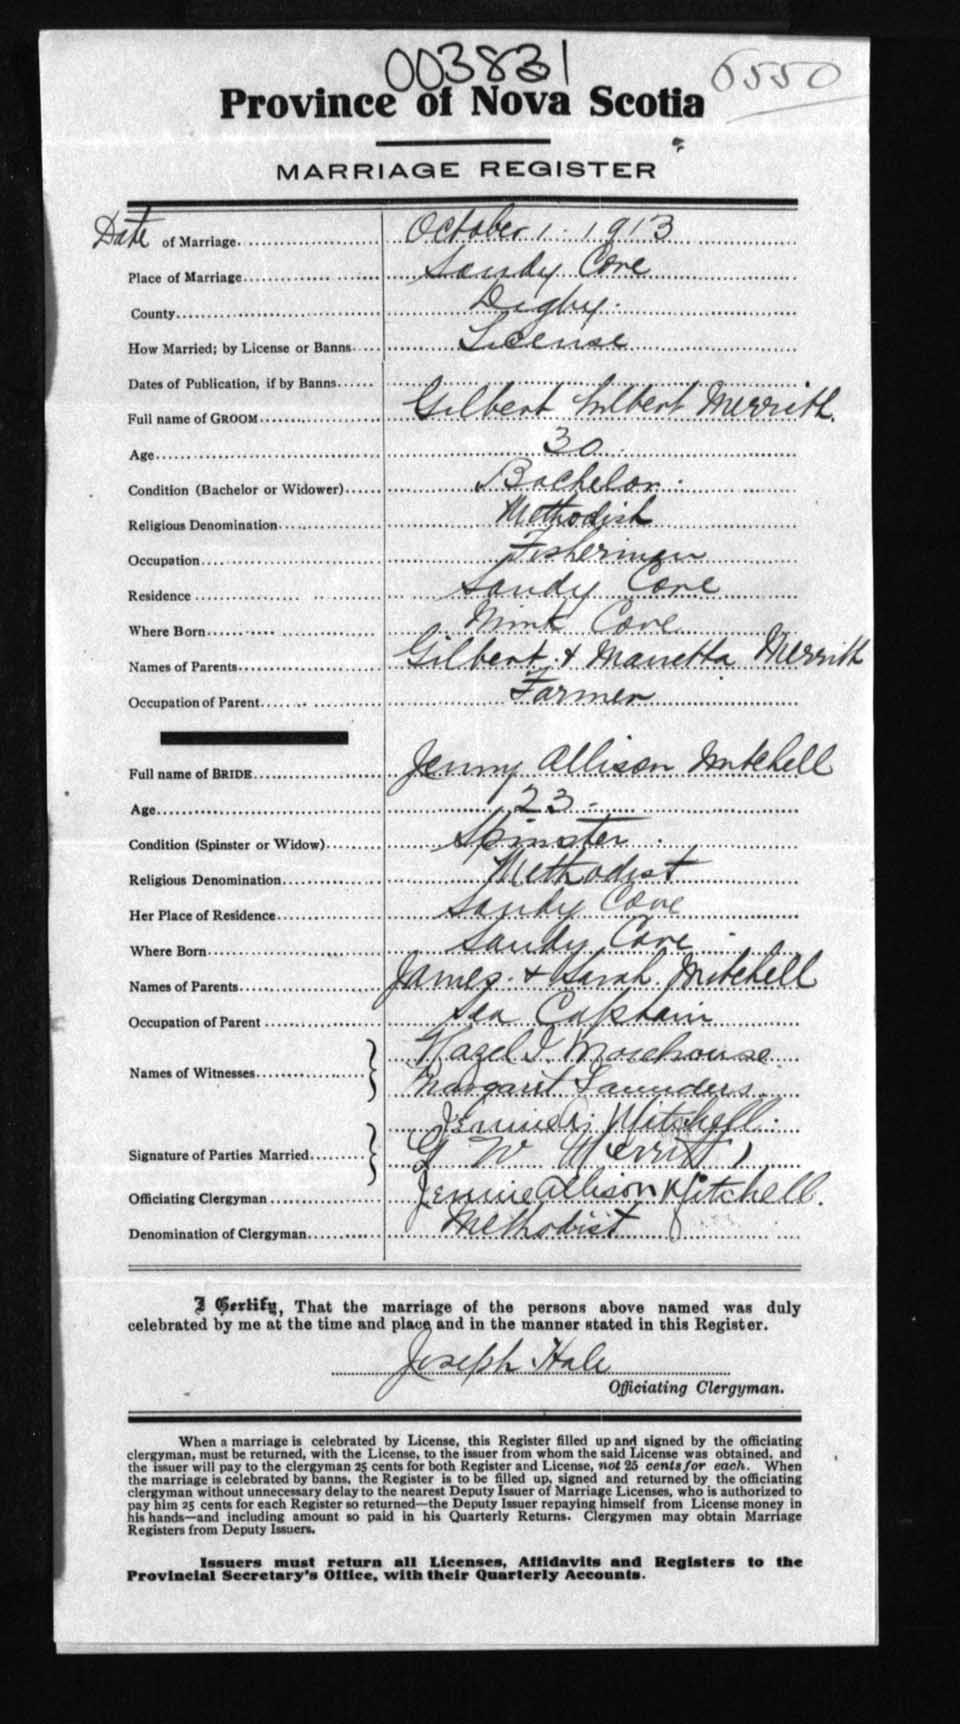 003831
6550
Province of Nova Scotia
MARRIAGE REGISTER
Date of Marriage October 1. 1913
Place of Marriage Sandy Cove
County Digby.
How Married; by License or Banns License
Dates of Publication, if by Banns
Full name of GROOM Gilbert Merritt.
Age 30
Condition (Bachelor or Widower) Bachelor.
Religious Denomination Methodist
Occupation Fisherman
Residence Sandy Cove
Where Born Mink Cove
Names of Parents Gilbert & Marietta Merritt
Occupation of Parent Farmer
Full name of BRIDE Jenny Allison Mitchell
Age 23 -
Condition (Spinster or Widow) Spinster.
Religious Denomination Methodist
Her Place of Residence Sandy Cove
Where Born Sandy Cove
Names of Parents James & Sarah Mitchell
Occupation of Parent Sea Captain
Hazel I. Morehouse
Names of Witnesses
Margaret Saunders.
Jennie A. Mitchell.
Signature of Parties Married G W Merritt
Officiating Clergyman Jennie Allison Mitchell.
Denomination of Clergyman Methodist
I Certify, That the marriage of the persons above named was duly
celebrated by me at the time and place and in the manner stated in this Register.
Joseph Hale
Officiating Clergyman.
When a marriage is celebrated by License, this Register filled up and signed by the officiating
clergyman, must be returned, with the License, to the issuer from whom the said License was obtained, and
the issuer will pay to the clergyman 25 cents for both Register and License, not 25 cents for each. When
the marriage is celebrated by banns, the Register is to be filled up, signed and returned by the officiating
clergyman without unnecessary delay to the nearest Deputy Issuer of Marriage Licenses, who is authorized to
pay him 25 cents for each Register so returned—the Deputy Issuer repaying himself from License money in
his hands—and including amount so paid in his Quarterly Returns. Clergymen may obtain Marriage
Registers from Deputy Issuers.
Issuers must return all Licenses, Affidavits and Registers to the
Provincial Secretary's Office, with their Quarterly Accounts.